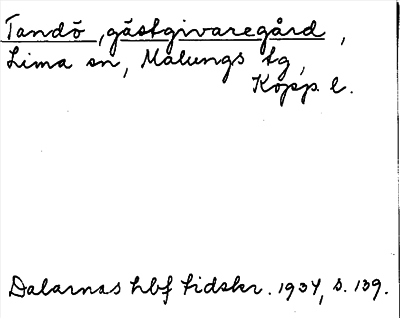 Tandö, gästgivaregård,
Lima sn, Malungs tg,
Kopp. l.
Dalarnas hbf tidskr. 1934, s. 139.